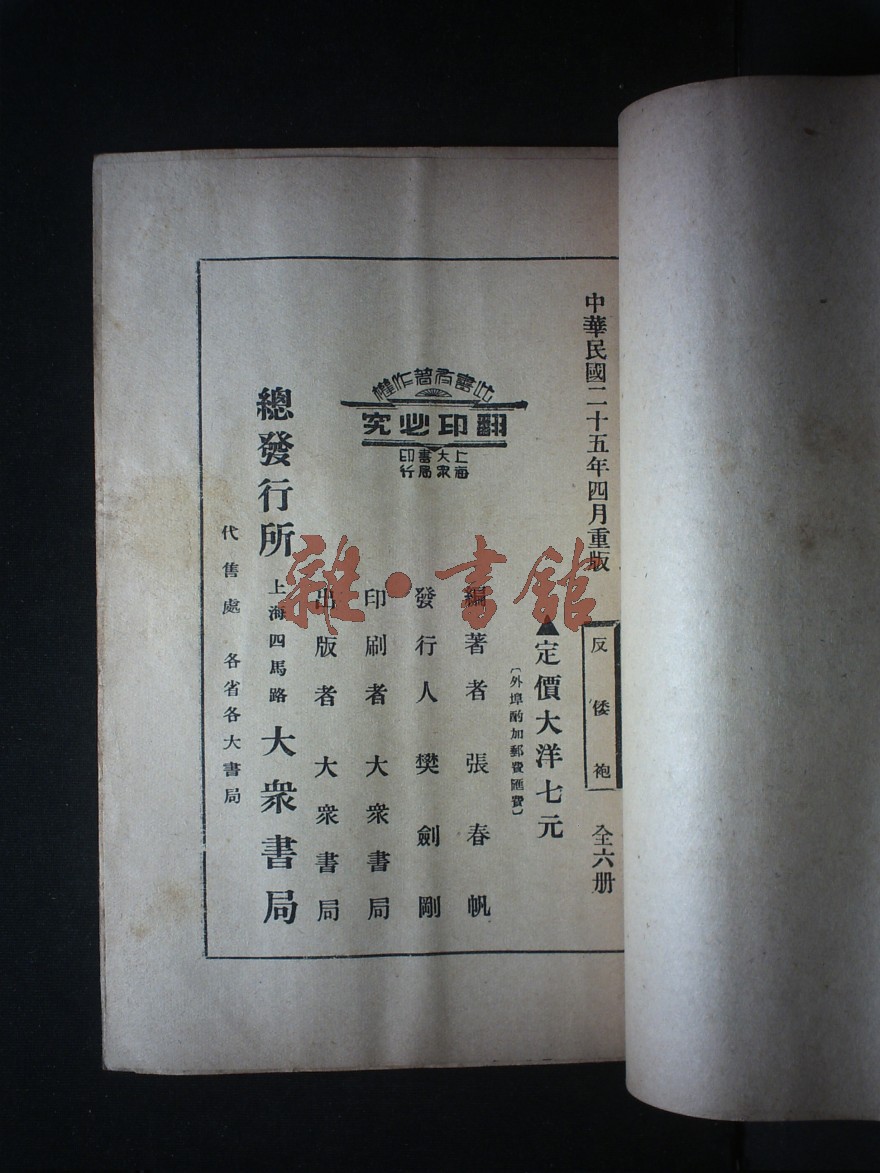 反倭袍
全六册
中華民國二十五年四月重版
▲定價大洋七元
〔外埠酌加郵費匯費〕
編著者 張春帆
發行人 樊劍剛
印刷者 大衆書局
出版者 大衆書局
此書有著作權
翻印必究
上海
大衆
書局
印行
總發行所 上海四馬路 大衆書局
代售處 各省各大書局
雜·書館